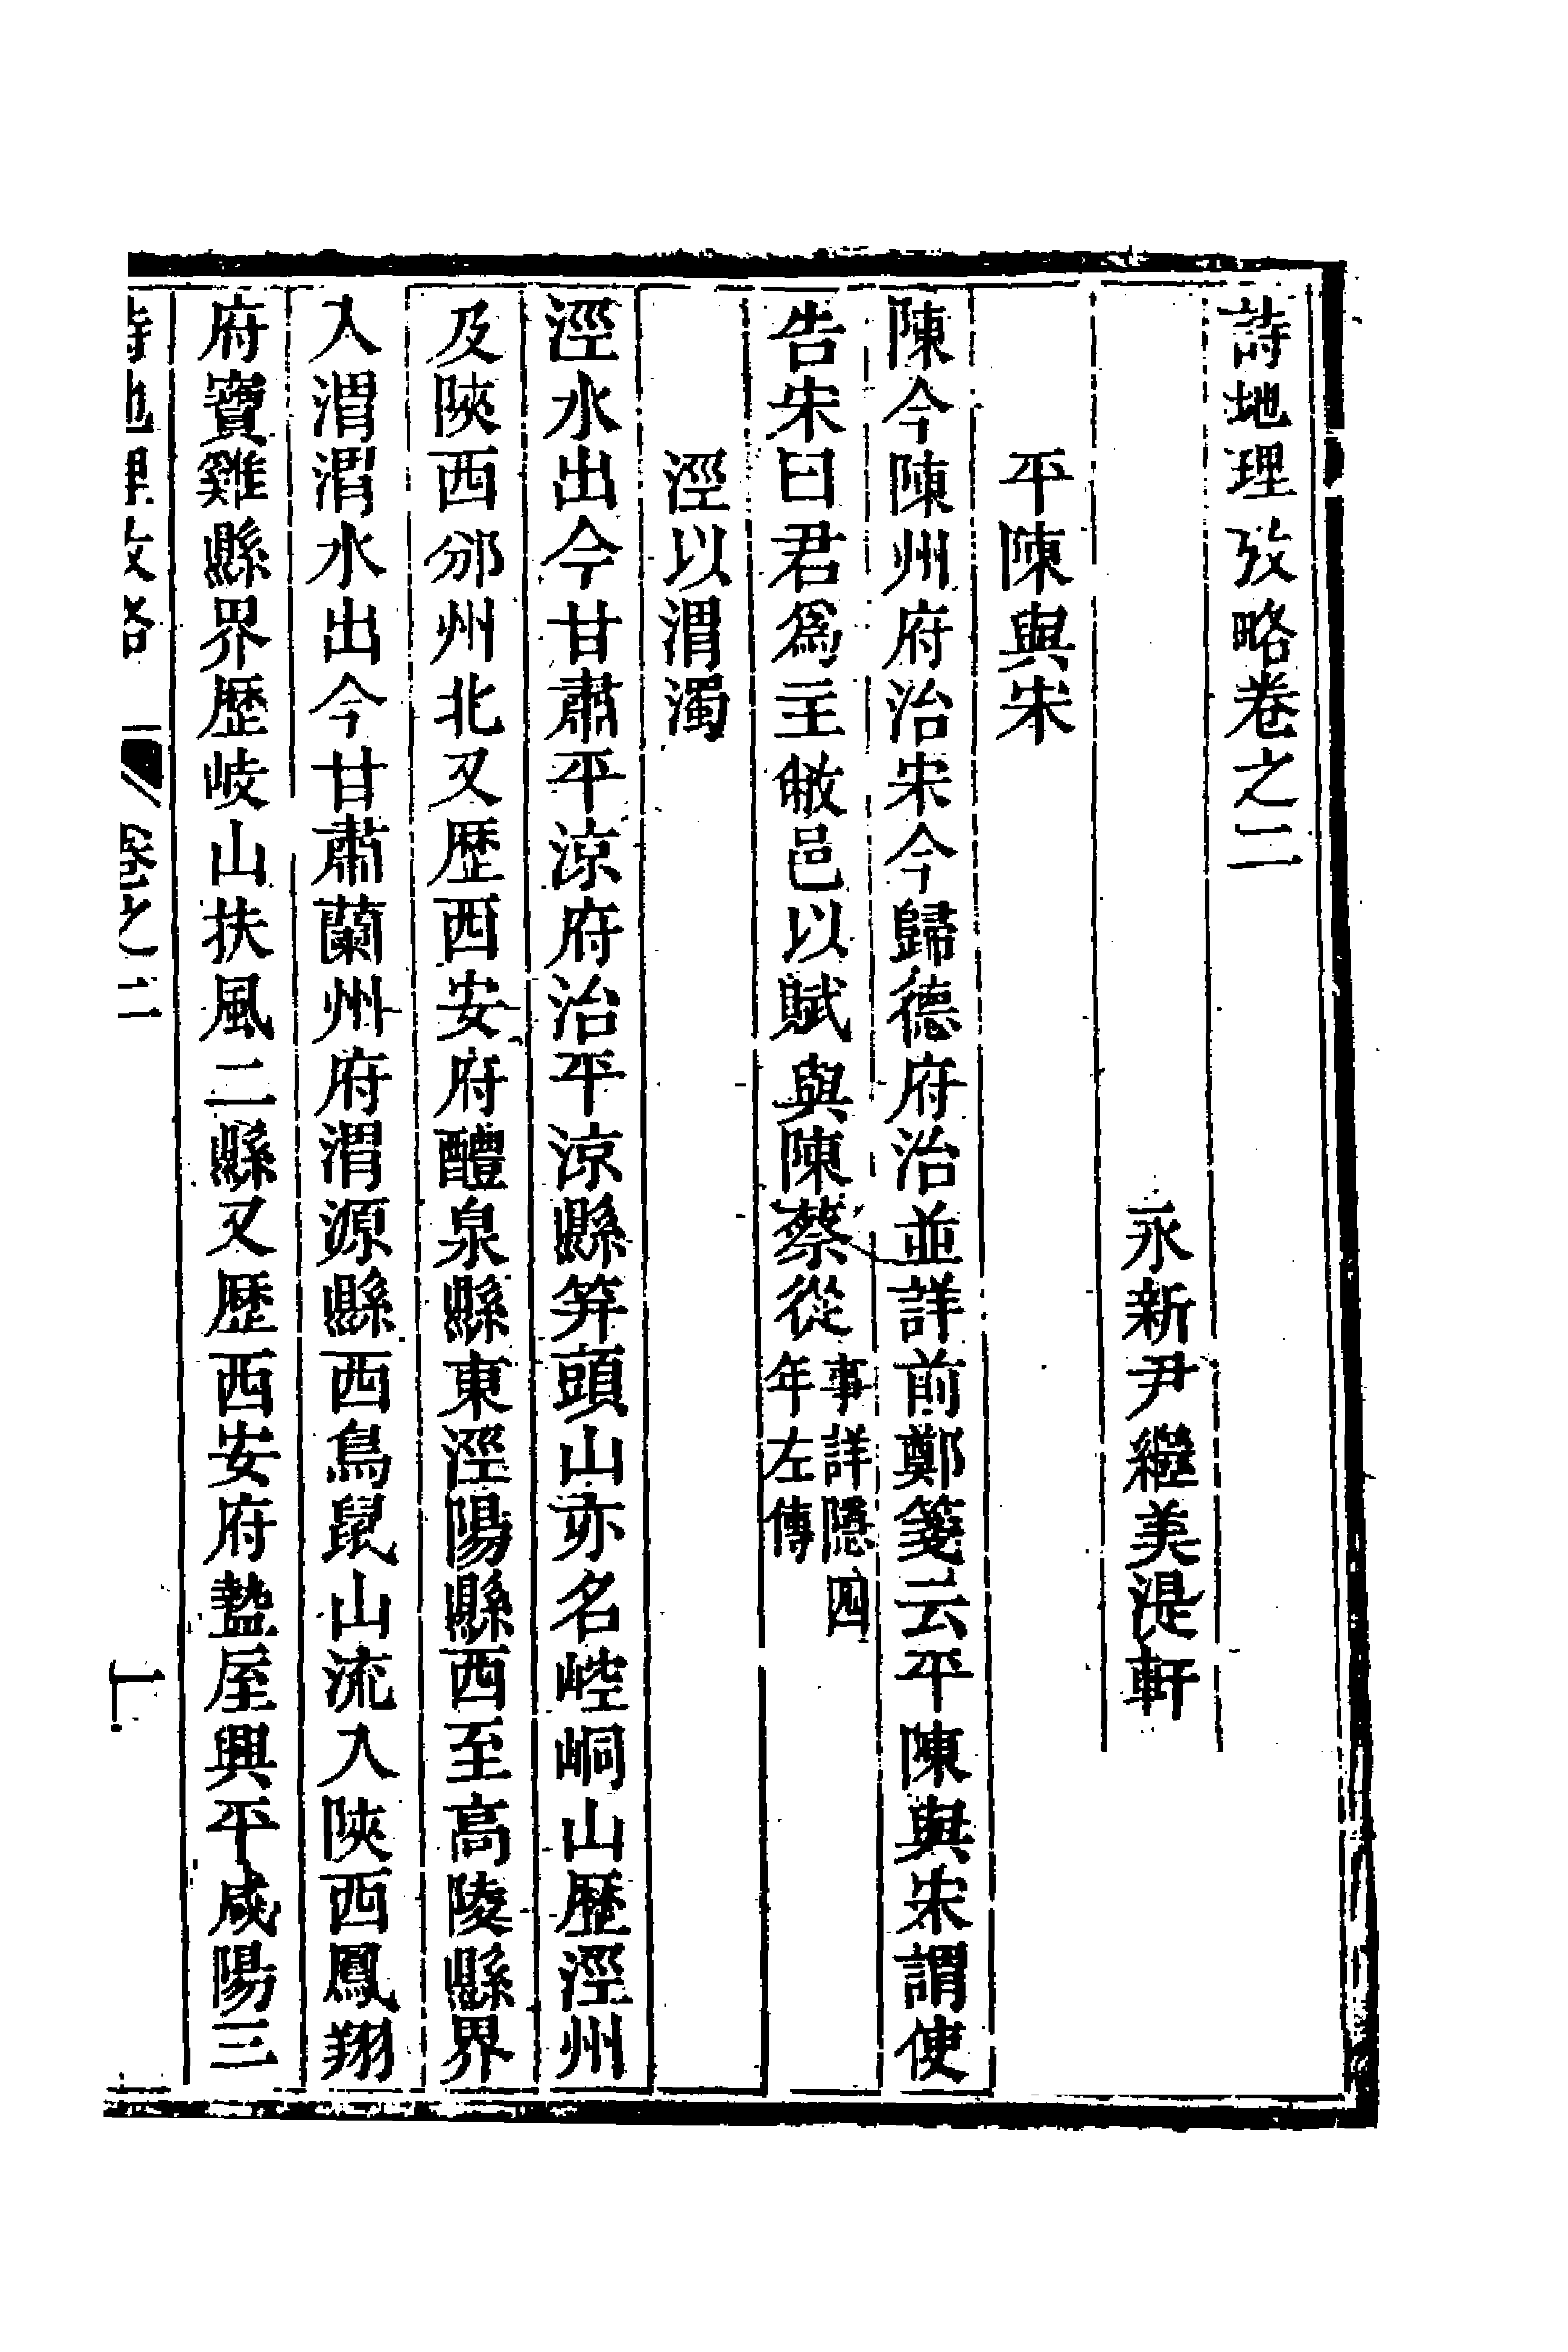 詩地理攷略卷之二
永新尹繼美湜軒
平陳與宋
陳今陳州府治宋今歸德府治並詳前鄭箋云平陳與宋謂使
告宋曰君爲主敝邑以賦與陳蔡從事詳隱四年左傳
涇以渭濁
涇水出今甘肅平涼府治平涼縣笄頭山亦名崆峒山歷涇州
及陝西邠州北又歷西安府醴泉縣東涇陽縣西至高陵縣界
入渭渭水出今甘肅蘭州府渭源縣西鳥鼠山流入陝西鳳翔
府寶雞縣界歷岐山扶風二縣又歷西安府盩厔興平咸陽三
詩地理攷略 卷之二 一